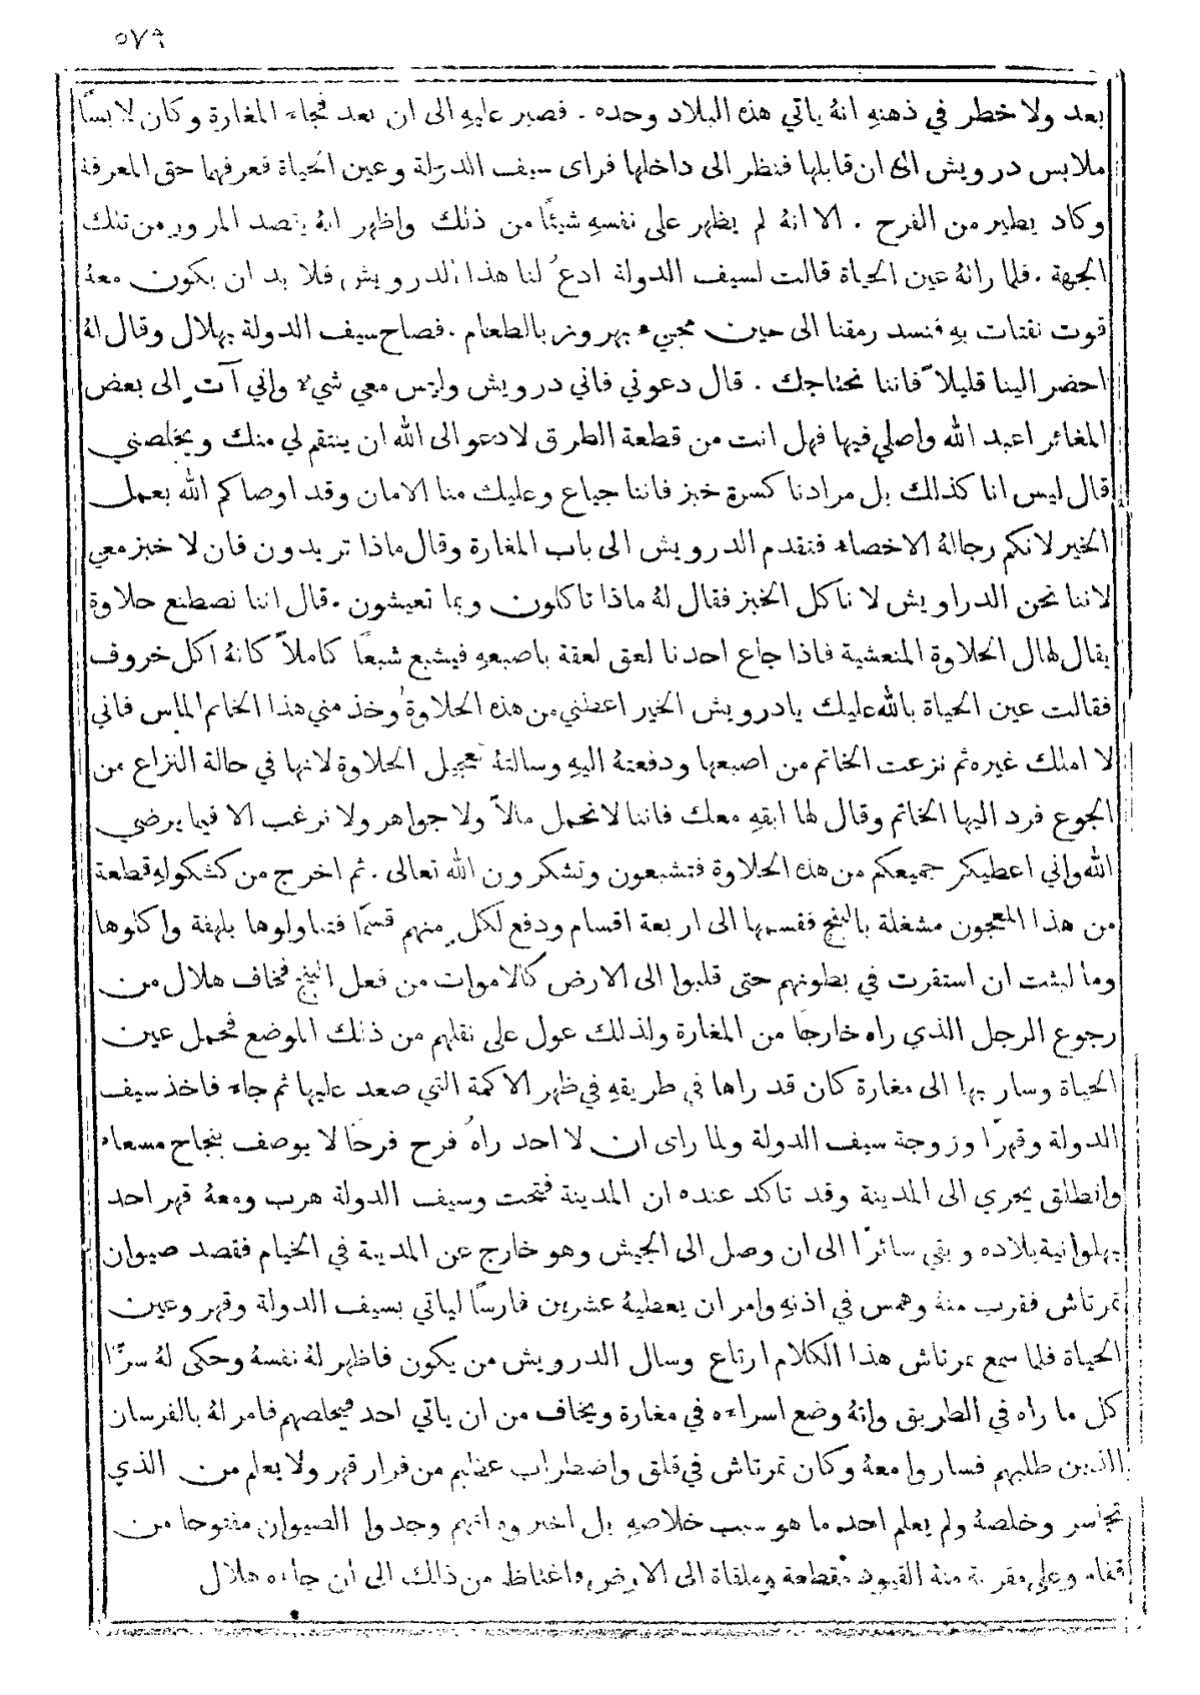 ٥٧٩
بعد ولا خطر في ذهنهِ انهُ ياتي هذه البلاد وحده . فصبر عليهِ الى ان بعد فجاء المغارة وكان لابسًا
ملابس درويش الى ان قابلها فنظر الى داخلها فراى سيف الدولة وعين الحياة فعرفهما حق المعرفة
وكاد يطير من الفرح . الا انهُ لم يظهر على نفسهِ شيئًا من ذلك واظهر انهُ يقصد المرور من تلك
الجهة . فلما راتهُ عين الحياة قالت لسيف الدولة ادعُ لنا هذا الدرويش فلا بد ان يكون معهُ
قوت نقتات بهِ فنسد رمقنا الى حين مجيء بهروز بالطعام . فصاح سيف الدولة بهلال وقال لهُ
احضر الينا قليلاً فاننا نحتاجك . قال دعوني فاني درويش وليس معي شيء واني آتٍ الى بعض
المغائر اعبد الله واصلي فيها فهل انت من قطعة الطرق لادعو الى الله ان ينتقم لي منك ويخلصني
قال ليس انا كذلك بل مرادنا كسرة خبز فاننا جياع وعليك منا الامان وقد اوصاكم الله بعمل
الخير لانكم رجالهُ الاخصاء فتقدم الدرويش الى باب المغارة وقال ماذا تريدون فان لا خبز معي
لاننا نحن الدراويش لا ناكل الخبز فقال لهُ ماذا تاكلون وبما تعيشون . قال اننا نصطنع حلاوة
يقال لها ال الحلاوة المنعشية فاذا جاع احدنا لعق لعقة باصبعهِ فيشبع شبعًا كاملاً كانهُ اكل خروف
فقالت عين الحياة بالله عليك يا درويش الخير اعطني من هذه الحلاوة وخذ مني هذا الخاتم الماس فاني
لا املك غيره ثم نزعت الخاتم من اصبعها ودفعتهُ اليهِ وسالتهُ تعجيل الحلاوة لانها في حالة النزاع من
الجوع فرد اليها الخاتم وقال لها ابقهِ معك فاننا لا نحمل مالاً ولا جواهر ولا نرغب الا فيما يرضي
الله واني اعطيكم جميعكم من هذه الحلاوة فتشبعون وتشكرون الله تعالى . ثم اخرج من كشكولهِ قطعة
من هذا المعجون مشغلة بالبنج فقسمها الى اربعة اقسام ودفع لكلٍ منهم قسمًا فتناولوها بلهفة واكلوها
وما لبثت ان استقرت في بطونهم حتى قلبوا الى الارض كالاموات من فعل البنج فخاف هلال من
رجوع الرجل الذي راه خارجًا من المغارة ولذلك عول على نقلهم من ذلك الموضع فحمل عين
الحياة وسار بها الى مغارة كان قد راها في طريقهِ في ظهر الاكمة التي صعد عليها ثم جاء فاخذ سيف
الدولة وقهرًا وزوجة سيف الدولة ولما راى ان لا احد راهُ فرح فرحًا لا يوصف بنجاح مسعاه
وانطلق يجري الى المدينة وقد تاكد عنده ان المدينة فتحت وسيف الدولة هرب ومعهُ قهر احد
بهلوانية بلاده وبقي سائرًا الى ان وصل الى الجيش وهو خارج عن المدينة في الخيام فقصد صيوان
تمرتاش فقرب منهُ وهمس في اذنهِ وامر ان يعطيهُ عشرين فارسًا لياتي بسيف الدولة وقهر وعين
الحياة فلما سمع تمرتاش هذا الكلام ارتاع وسال الدرويش من يكون فاظهر لهُ نفسهُ وحكى لهُ سرًا
كل ما راه في الطريق وانهُ وضع اسراءه في مغارة ويخاف من ان ياتي احد فيخلصهم فامر لهُ بالفرسان
الذين طلبهم فساروا معهُ وكان تمرتاش في قلق واضطراب عظيم من فرار قهر ولا يعلم من الذي
تجاسر وخلصهُ ولم يعلم احد ما هو سبب خلاصهِ بل اخبروه انهم وجدوا الصيوان مفتوحا من
قفاه وعلى مقربة منهُ القيود مقطعة وملقاة الى الارض واغتاظ من ذلك الى ان جاءه هلال